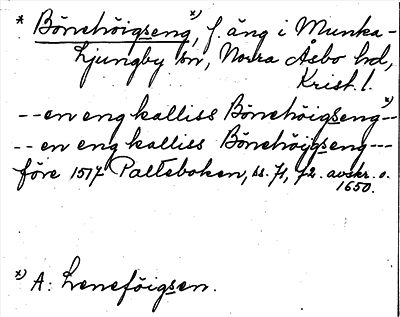 * Bönehöigseng x), f. äng i Munka-
Ljungby sn, Norra Åsbo hd,
Krist. l.
-- en eng kalliss Bönehöigseng x) --
-- en eng kalliss Bönehöijgseng ---
före 1517 Palteboken, ss. 71, 72. avskr. o.
1650.
x) A: Leneföigsen.